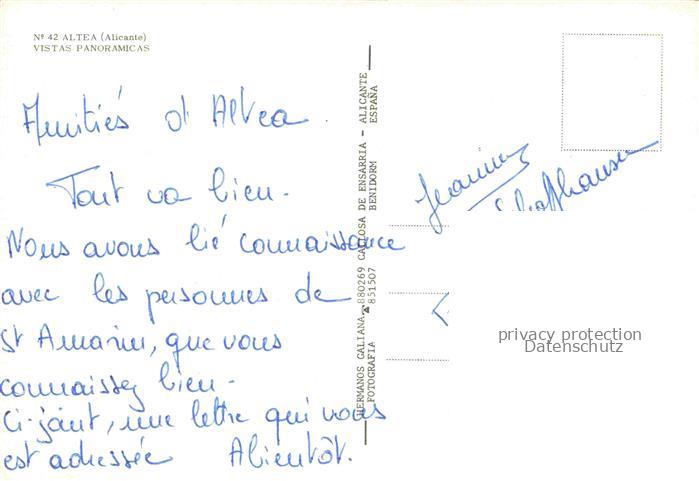 Nº 42 ALTEA (Alicante)
VISTAS PANORAMICAS
Amitiés d'Altea.
Tout va bien.
Nous avons lié connaissance
avec les personnes de
St Amarin, que vous
connaissez bien.
Ci-joint, une lettre qui vous
est adressée Abientôt.
HERMANOS GALIANA ☎ 880269 CALLOSA DE ENSARRIA - ALICANTE
FOTOGRAFIA 851507 BENIDORM ESPAÑA
privacy protection
Datenschutz